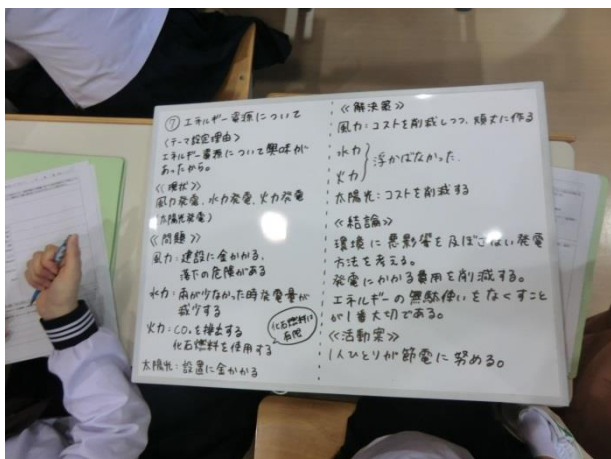 ⑦ エネルギー資源について
〈テーマ設定理由〉
エネルギー資源について興味が
あったから。
《現状》
風力発電、水力発電、火力発電
太陽光発電
《問題》
風力：建設に金がかかる、
落下の危険がある
水力：雨が少なかった時発電量が
減少する
火力：CO₂を排出する
化石燃料を使用する
化石燃料は
有限
太陽光：設置に金がかかる
《解決策》
風力：コストを削減しつつ、頑丈に作る
水力
火力
浮かばなかった。
太陽光：コストを削減する
《結論》
環境に悪影響を及ぼさない発電
方法を考える。
発電にかかる費用を削減する。
エネルギーの無駄使いをなくすこと
が1番大切である。
《活動案》
1人ひとりが節電に努める。